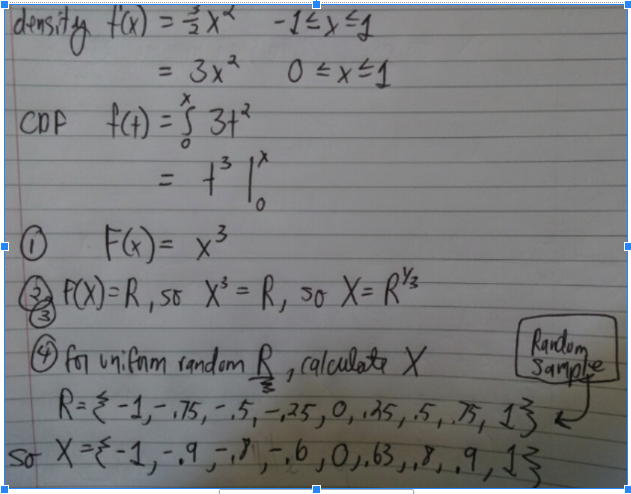 density f(x) = 3/2 x² -1≤x≤1
= 3x² 0≤x≤1
CDF f(t) = ∫₀ˣ 3t²
= t³ |₀ˣ
① F(x) = x³
② ③ F(X)=R, so X³ = R, so X = R^1/3
④ for uniform random R, calculate X
Random
Sample
R = {-1, -.75, -.5, -.25, 0, .25, .5, .75, 1}
so X = {-1, -.9, -.8, -.6, 0, .63, .8, .9, 1}